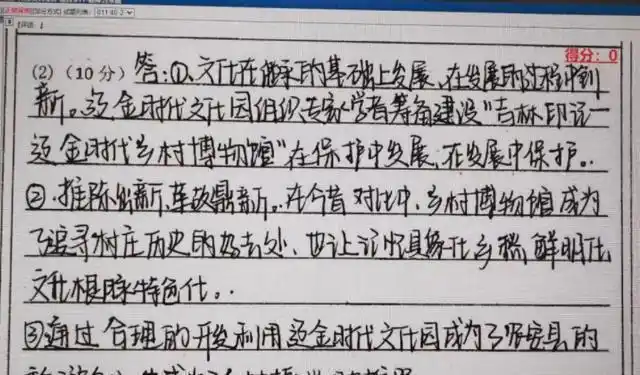 011 40 2
得分：0
(2)（10分）答：①、文化在继承的基础上发展，在发展的过程中创
新。辽金时代文化园组织专家学者筹备建设"吉林印记—
辽金时代乡村博物馆"在保护中发展，在发展中保护。
②、推陈出新，革故鼎新。在今昔对比中，乡村博物馆成为
了追寻村庄历史的好去处、也让记忆具象化乡愁，鲜明化
文化根脉特色化。
③通过合理的开发利用辽金时代文化园成为了农安县的